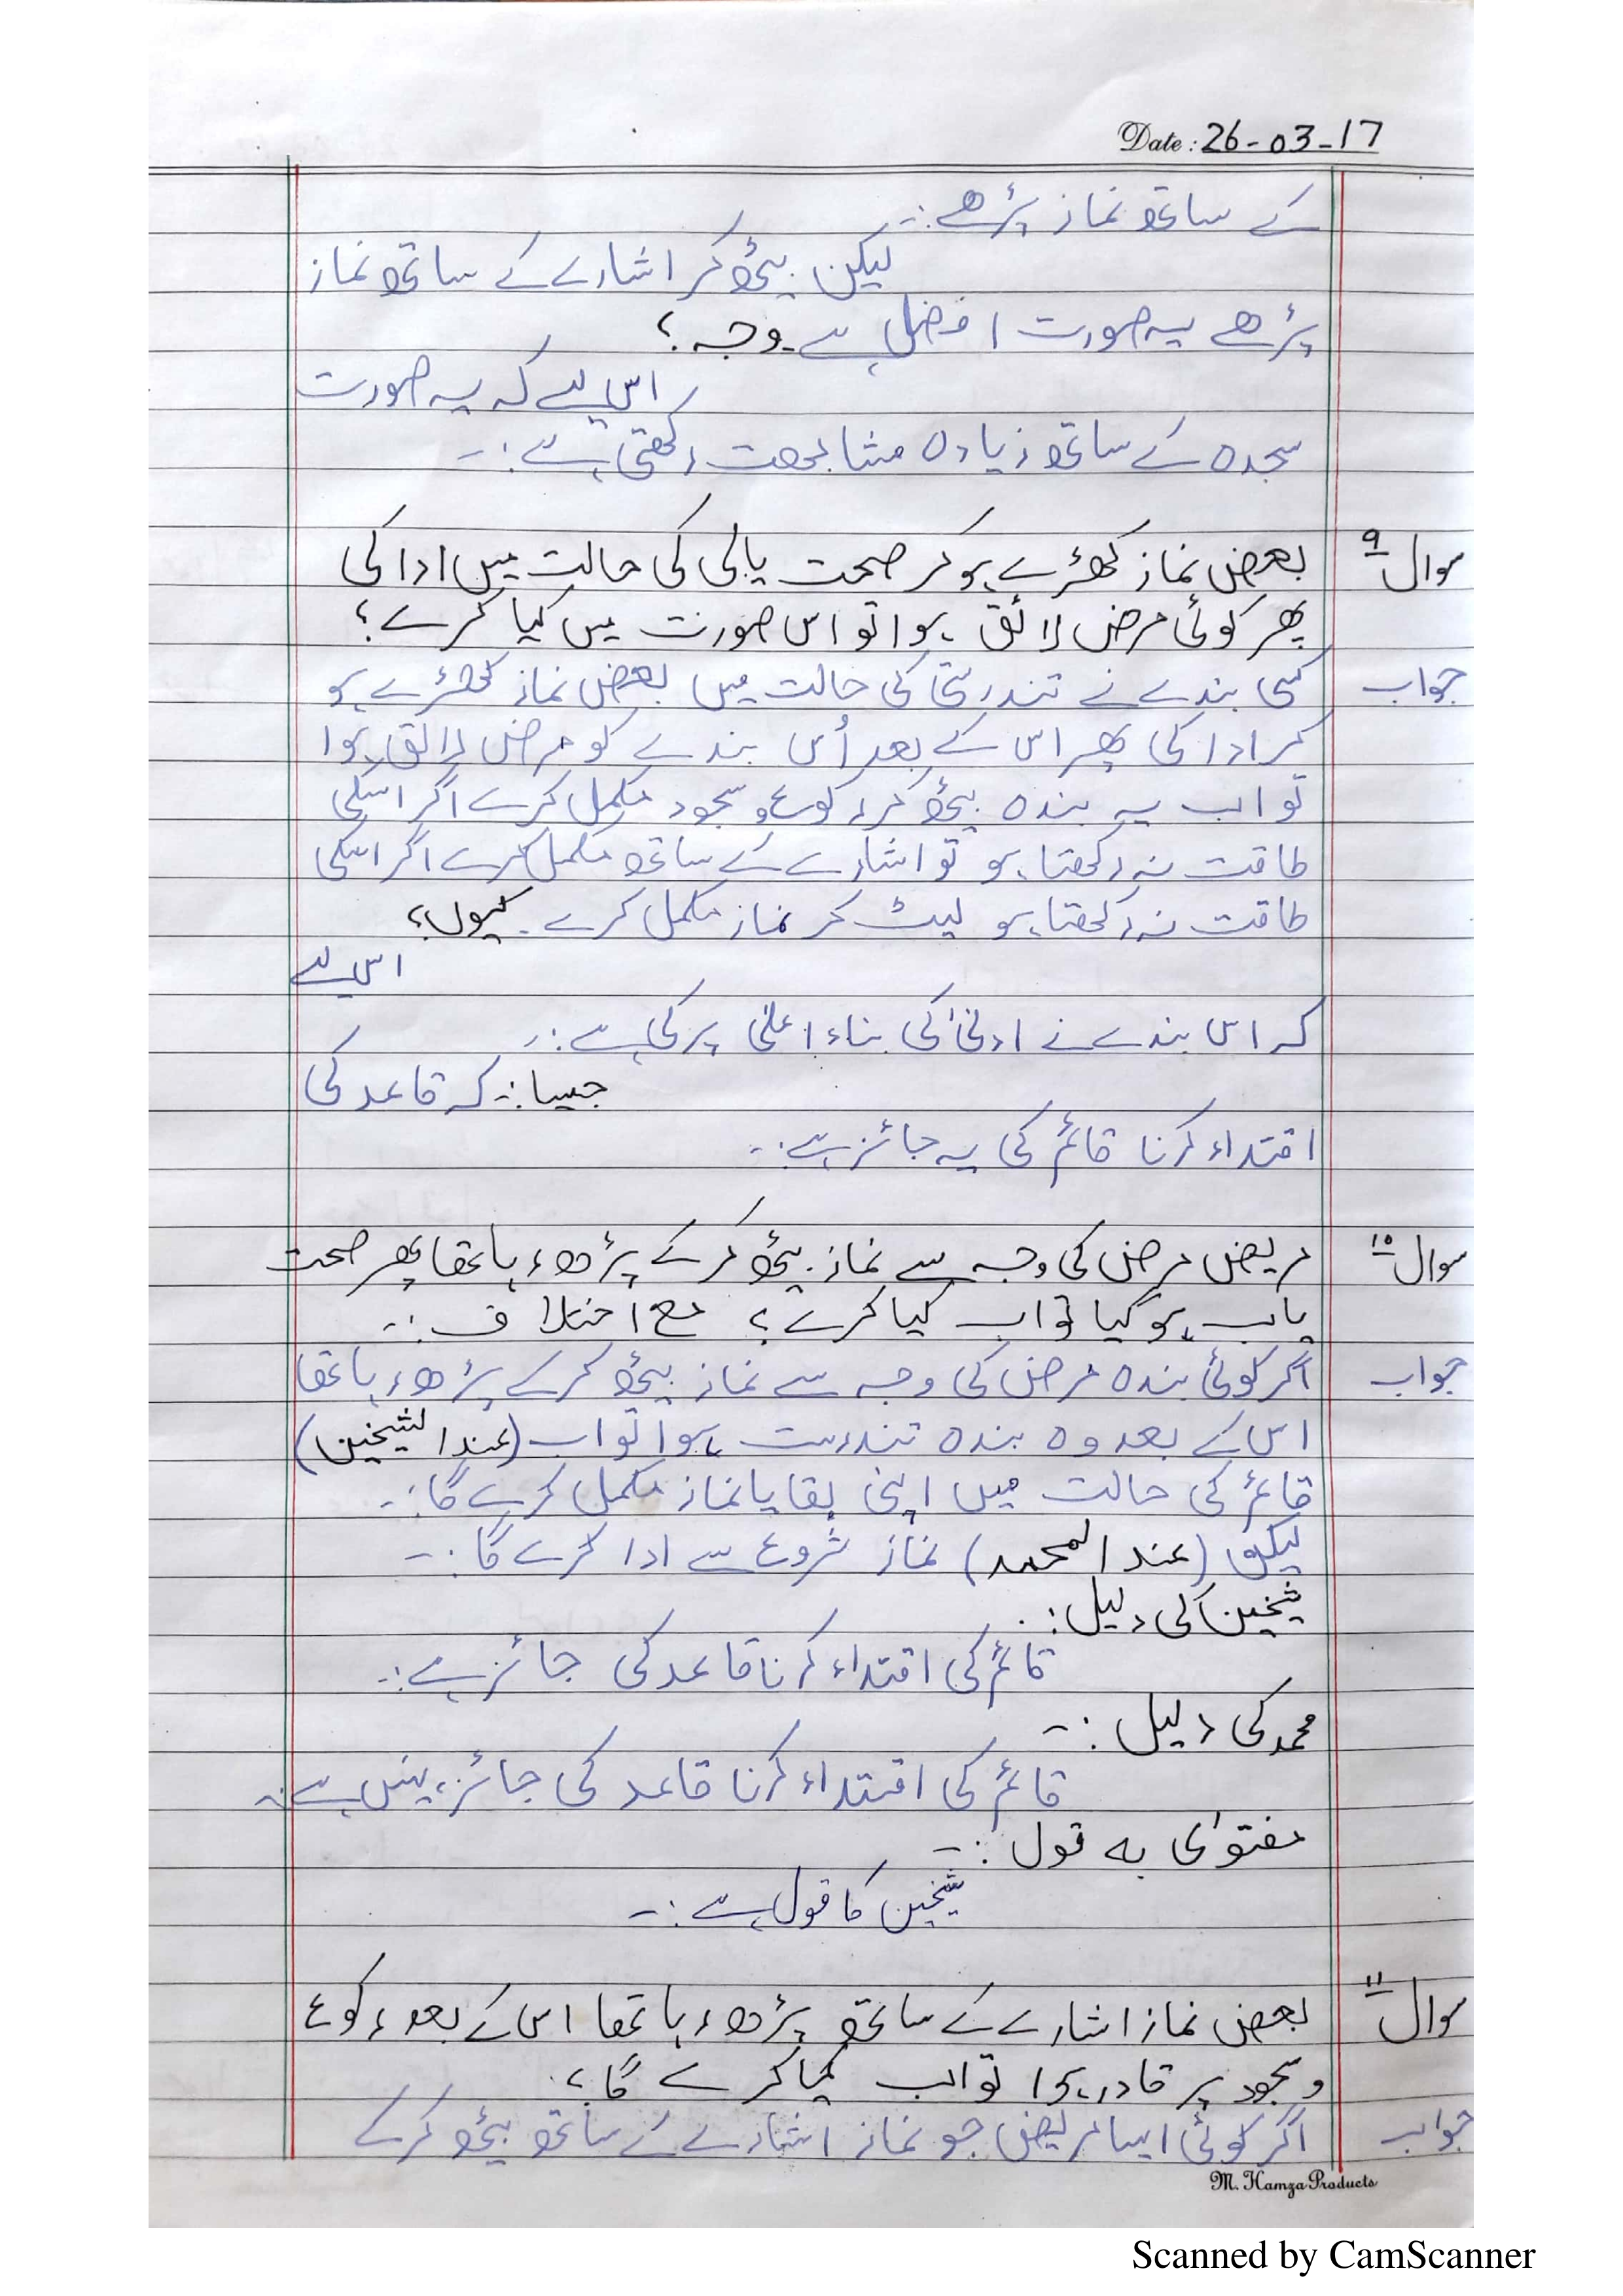 Date: 26-03-17
کے ساتھ نماز پڑھے:-
لیکن بیٹھ کر اشارے کے ساتھ نماز
پڑھے یہ صورت افضل ہے۔ وجہ؟
اس لیے کہ یہ صورت
سجدہ کے ساتھ زیادہ مشابھت رکھتی ہے:-
سوال ۹ بعض نماز کھڑے ہو کر صحت یابی کی حالت میں ادا کی
پھر کوئی مرض لائق ہوا تو اس صورت میں کیا کرے؟
جواب کسی بندے نے تندرستی کی حالت میں بعض نماز کھڑے ہو
کر ادا کی پھر اس کے بعد اُس بندے کو مرض لائق ہوا
تو اب یہ بندہ بیٹھ کر رکوع و سجود مکمل کرے اگر اسکی
طاقت نہ رکھتا ہو تو اشارے کے ساتھ مکمل کرے اگر اسکی
طاقت نہ رکھتا ہو لیٹ کر نماز مکمل کرے۔ کیوں؟
اس لیے
کہ اس بندے نے ادنیٰ کی بناء اعلیٰ پر کی ہے:-
جیسا:- کہ قاعد کی
اقتداء کرنا قائم کی یہ جائز ہے:-
سوال ۱۰ مریض مرض کی وجہ سے نماز بیٹھ کر کے پڑھ رہا تھا پھر صحت
یاب ہو گیا تو اب کیا کرے؟ مع اختلاف:-
جواب اگر کوئی بندہ مرض کی وجہ سے نماز بیٹھ کر کے پڑھ رہا تھا
اس کے بعد وہ بندہ تندرست ہوا تو اب (عند الشیخین)
قائم کی حالت میں اپنی بقایا نماز مکمل کرے گا:-
لیکن (عند المحمد) نماز شروع سے ادا کرے گا:-
شیخین کی دلیل:-
قائم کی اقتداء کرنا قاعد کی جائز ہے:-
محمد کی دلیل:-
قائم کی اقتداء کرنا قاعد کی جائز نہیں ہے:-
مفتوی بہ قول:-
شیخین کا قول ہے:-
سوال ۱۱ بعض نماز اشارے کے ساتھ پڑھ رہا تھا اس کے بعد رکوع
و سجود پر قادر ہوا تو اب کیا کرے گا؟
جواب اگر کوئی ایسا مریض جو نماز اشارے کے ساتھ بیٹھ کر کے
M. Hamza Products
Scanned by CamScanner